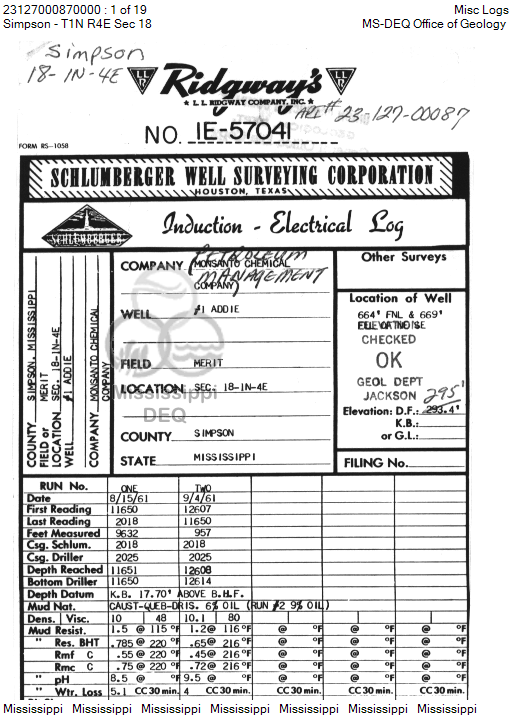 23127000870000 : 1 of 19 Misc Logs
Simpson - T1N R4E Sec 18 MS-DEQ Office of Geology
Simpson
18-1N-4E
LLR Ridgway's LLR
★ L. L. RIDGWAY COMPANY, INC. ★
API# 23-127-00087
NO. IE-57041
FORM RS-1058
SCHLUMBERGER WELL SURVEYING CORPORATION
HOUSTON, TEXAS
SCHLUMBERGER
Induction - Electrical Log
COUNTY SIMPSON, MISSISSIPPI
FIELD or LOCATION MERIT SEC. 18-1N-4E
WELL #1 ADDIE
COMPANY MONSANTO CHEMICAL COMPANY
COMPANY (MONSANTO CHEMICAL COMPANY) PETROLEUM MANAGEMENT
WELL #1 ADDIE
FIELD MERIT
LOCATION SEC. 18-1N-4E
Mississippi
DEQ
COUNTY SIMPSON
STATE MISSISSIPPI
Other Surveys
Location of Well
664' FNL & 669'
CHECKED
OK
GEOL DEPT
JACKSON 295'
Elevation: D.F.: 293.4'
K.B.:
or G.L.:
FILING No.
RUN No. ONE TWO
Date 8/15/61 9/4/61
First Reading 11650 12607
Last Reading 2018 11650
Feet Measured 9632 957
Csg. Schlum. 2018 2018
Csg. Driller 2025 2025
Depth Reached 11651 12608
Bottom Driller 11650 12614
Depth Datum K.B. 17.70' ABOVE B.H.F.
Mud Nat. CAUST-QUEB-DRIS. 6% OIL (RUN #2 9% OIL)
Dens. Visc. 10 48 10.1 80
Mud Resist. 1.5 @ 115 °F 1.2 @ 116 °F @ °F @ °F @ °F
" Res. BHT .785 @ 220 °F .65 @ 216 °F @ °F @ °F @ °F
" Rmf C .55 @ 220 °F .45 @ 216 °F @ °F @ °F @ °F
" Rmc C .75 @ 220 °F .72 @ 216 °F @ °F @ °F @ °F
" pH 8.5 @ °F 9.5 @ °F @ °F @ °F @ °F
" Wtr. Loss 5.1 CC 30 min. 4 CC 30 min. CC 30 min. CC 30 min. CC 30 min.
Mississippi Mississippi Mississippi Mississippi Mississippi Mississippi Mississippi Mississippi